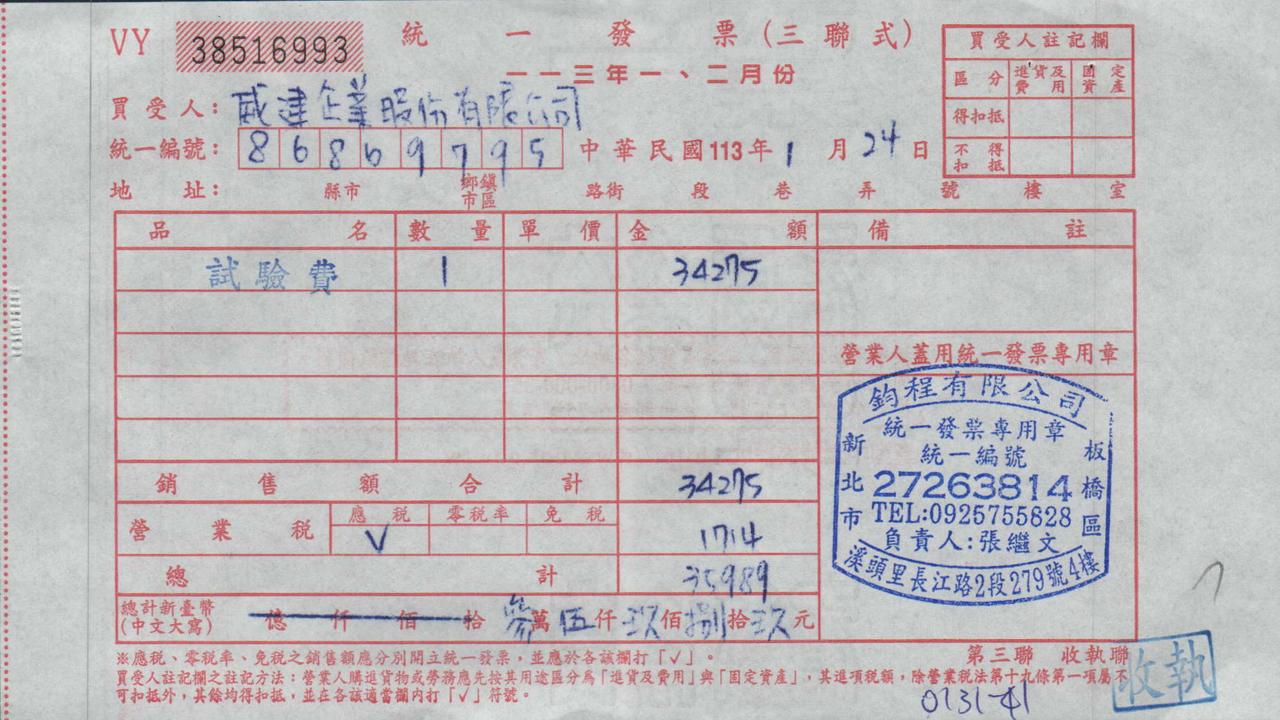 VY 38516993 統一發票(三聯式)
一一三年一、二月份
買受人註記欄
區分 進貨及費用 固定資產
得扣抵
不得扣抵
買受人: 威建企業股份有限公司
統一編號: 86869795 中華民國113年1月24日
地址: 縣市 鄉鎮市區 路街 段 巷 弄 號 樓 室
品名 數量 單價 金額 備註
試驗費 1 34275
營業人蓋用統一發票專用章
銷售額合計 34275
營業稅 應稅 零稅率 免稅
V 1714
總計 35989
總計新臺幣(中文大寫) 億仟佰拾參萬伍仟玖佰捌拾玖元
鈞程有限公司
統一發票專用章
統一編號
27263814
TEL:0925755828
負責人:張繼文
新北市板橋區
溪頭里長江路2段279號4樓
※應稅、零稅率、免稅之銷售額應分別開立統一發票,並應於各該欄打「√」。
第三聯 收執聯
買受人註記欄之註記方法:營業人購進貨物或勞務應先按其用途區分為「進貨及費用」與「固定資產」,其進項稅額,除營業稅法第十九條第一項屬不
可扣抵外,其餘均得扣抵,並在各該適當欄內打「√」符號。
收執
0131-41